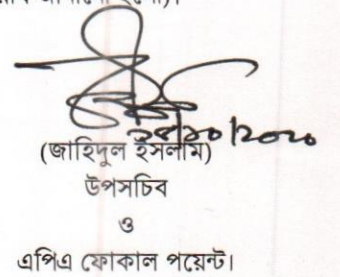 ২৮/১০/২০২০
(জাহিদুল ইসলাম)
উপসচিব
ও
এপিএ ফোকাল পয়েন্ট।